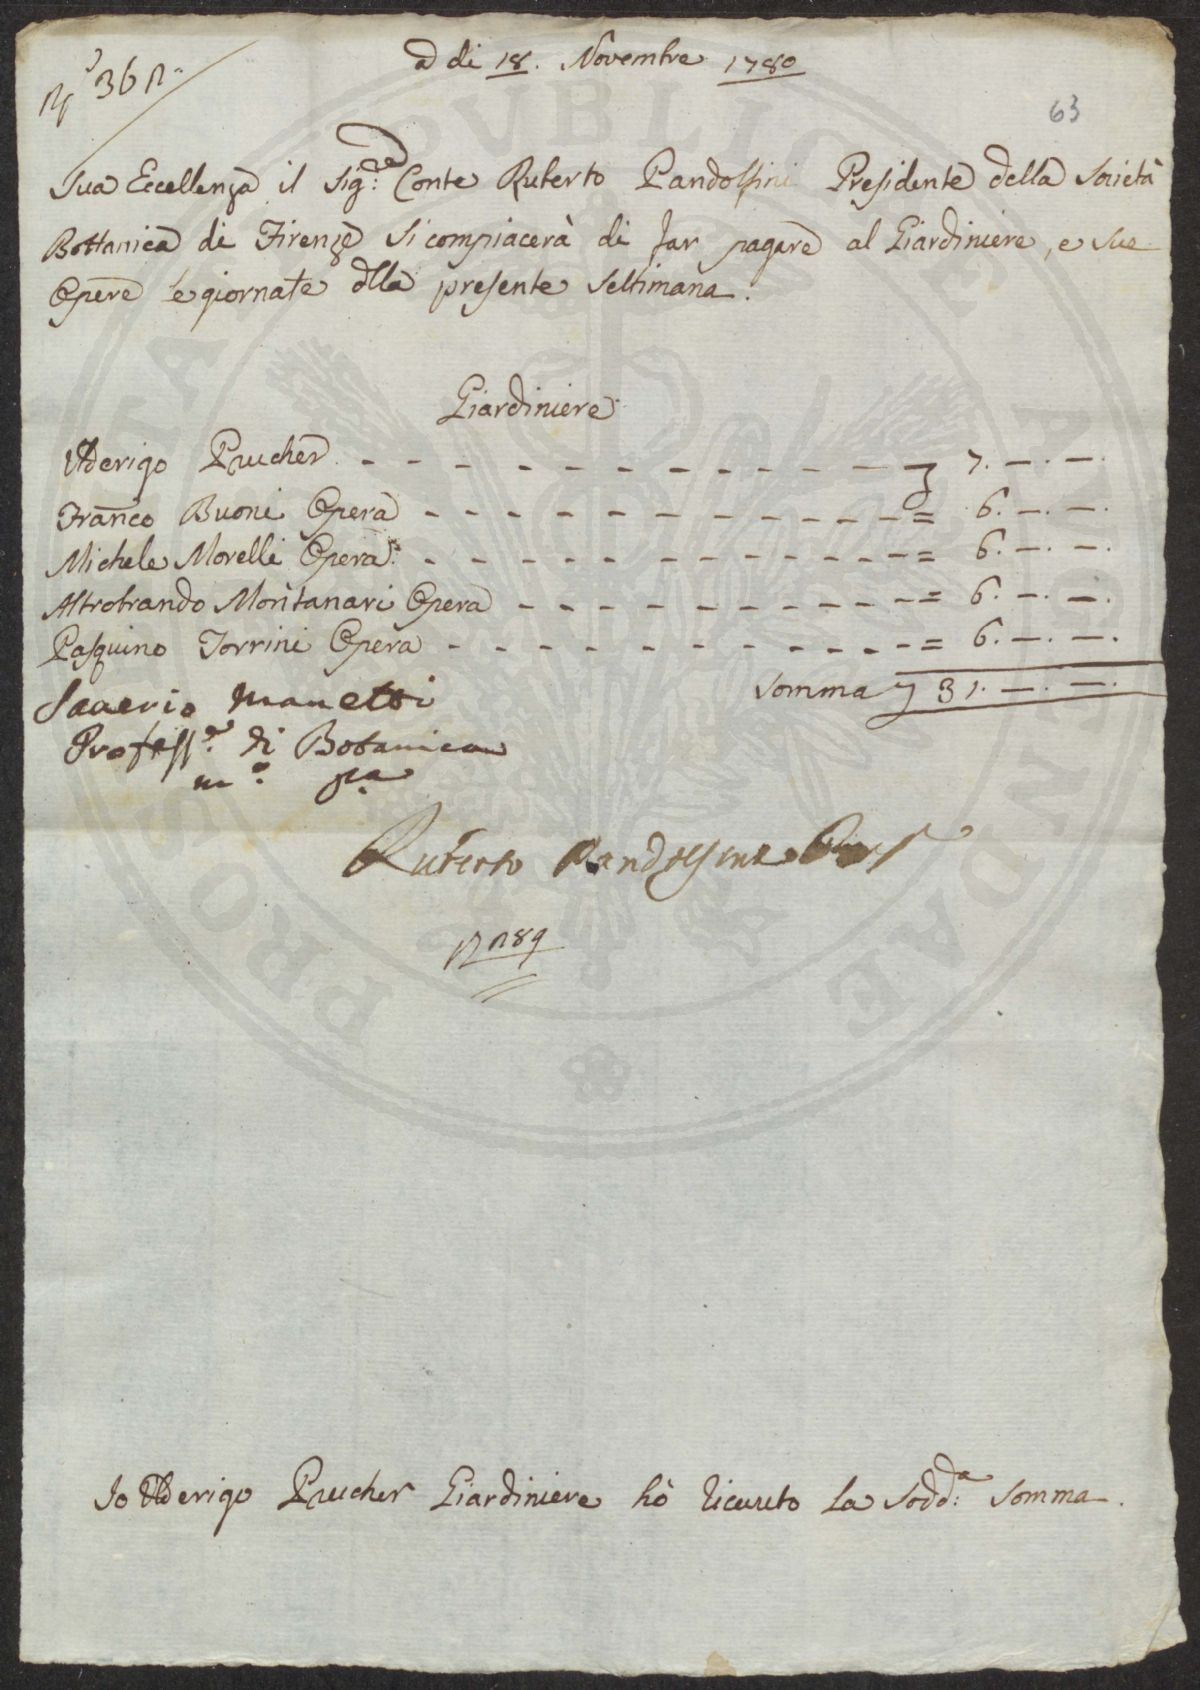 a di 18. Novembre 1780
63
Sua Eccellenza il Sig.re Conte Ruberto Pandolfini Presidente della Società
Bottanica di Firenze si compiacerà di far pagare al Giardiniere, e sue
Opere le giornate dlla presente Settimana.
Giardiniere
Uderigo Prucher - - - - - - - - - - - - - 7. —. —.
Franco Buoni Opera - - - - - - - - - - - = 6. —. —.
Michele Morelli Opera - - - - - - - - - - - = 6. —. —.
Altrobrando Montanari Opera - - - - - - - - - = 6. —. —.
Pasquino Torrini Opera - - - - - - - - - - - = 6. —. —.
Somma 31. —. —.
Saverio Manetti
Profess.e di Botanica
m.o pa
Ruberto Pandolfini
Io Uderigo Prucher Giardiniere hò riceuto la Sodd.a Somma.
PUBLICAE FLORENTINAE PROSPERITATI